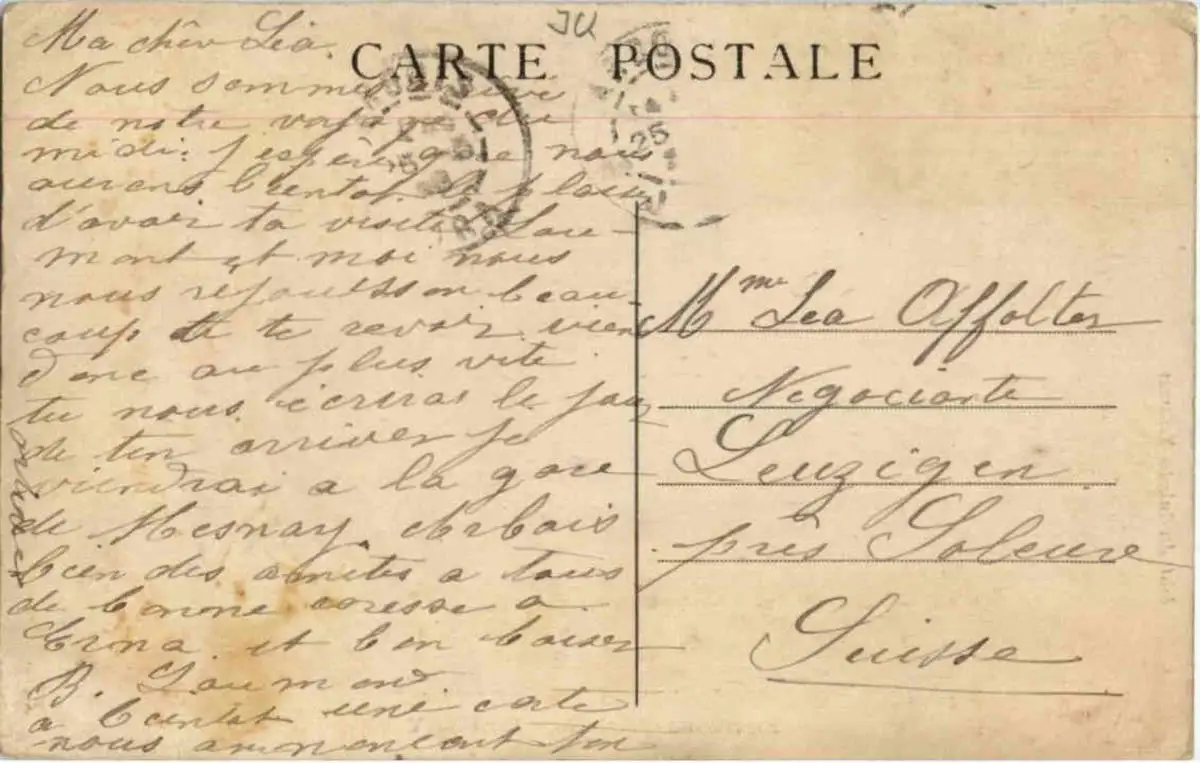 JU
CARTE POSTALE
25
Ma chèr Léa.
Nous sommes
de notre voyage du
midi. j'espère que nous
aurons bientot le plaisir
d'avoir ta visite Lau-
mont et moi nous
nous rejouisson beau-
coup de te revoir vien
donc au plus vite
tu nous écriras le jour
de ton arriver je
viendrai a la gare
de Mesnay. Arbois
bien des amities a tous
de bonne a
Erna et bon baiser
B. Laumond
a bientot une carte
nous annoncant ton
arriver
Mme Lea Affolter
Negociante
Leuzigen
près Soleure
Suisse